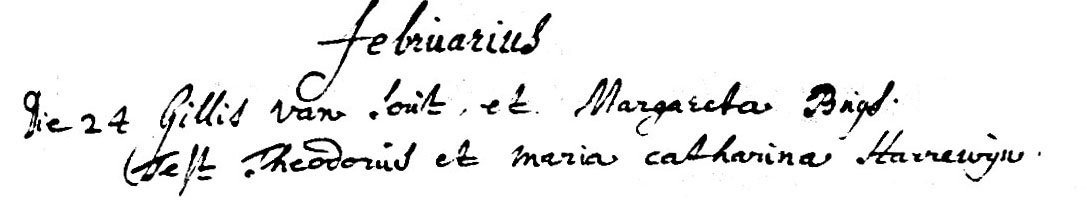 februarius
Die 24 Gillis van Sout, et Margareta Brigs.
Test Theodorus et maria catharina Harrewijn.